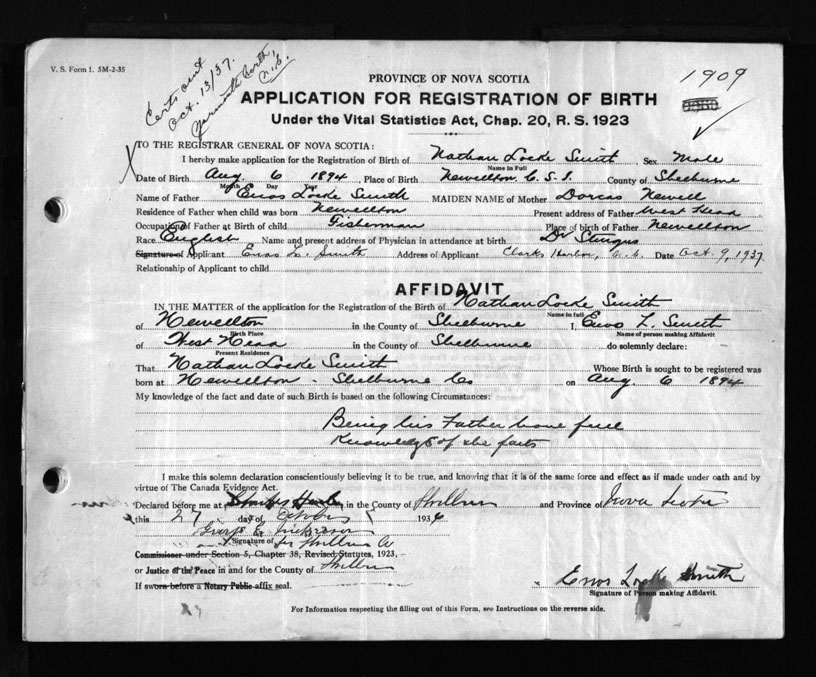 V. S. Form 1. 5M-2-35
Certs out
Oct. 13/37.
Yarmouth North,
N.S.
1909
PROVINCE OF NOVA SCOTIA
APPLICATION FOR REGISTRATION OF BIRTH
Under the Vital Statistics Act, Chap. 20, R. S. 1923
TO THE REGISTRAR GENERAL OF NOVA SCOTIA:
I hereby make application for the Registration of Birth of Nathan Locke Smith Sex Male
Name in Full
Date of Birth Aug. 6 1894 Place of Birth Newellton C. S. I. County of Shelburne
Month Day Year
Name of Father Enos Locke Smith MAIDEN NAME of Mother Dorcas Newell
Residence of Father when child was born Newellton Present address of Father West Head
Occupation of Father at Birth of child Fisherman Place of birth of Father Newellton
Race English Name and present address of Physician in attendance at birth Dr
Signature of Applicant Enos L. Smith Address of Applicant Clarks Harbor, N.S. Date Oct. 9, 1937
Relationship of Applicant to child
AFFIDAVIT
IN THE MATTER of the application for the Registration of the Birth of Nathan Locke Smith
Name in full
of Newellton in the County of Shelburne I, Enos L. Smith
Birth Place Name of person making Affidavit
of West Head in the County of Shelburne do solemnly declare:
Present Residence
That Nathan Locke Smith Whose Birth is sought to be registered was
born at Newellton - Shelburne Co on Aug 6 1894
My knowledge of the fact and date of such Birth is based on the following Circumstances:
Being his Father have full
Knowledge of the facts
I make this solemn declaration conscientiously believing it to be true, and knowing that it is of the same force and effect as if made under oath and by
virtue of The Canada Evidence Act.
Declared before me at in the County of Shelburne and Province of Nova Scotia
this 27 day of October 193
George E Nickerson
Signature of
Commissioner under Section 5, Chapter 38, Revised Statutes, 1923,
or Justice of the Peace in and for the County of Shelburne
If sworn before a Notary Public affix seal.
Enos Locke Smith
Signature of Person making Affidavit.
For Information respecting the filling out of this Form, see Instructions on the reverse side.